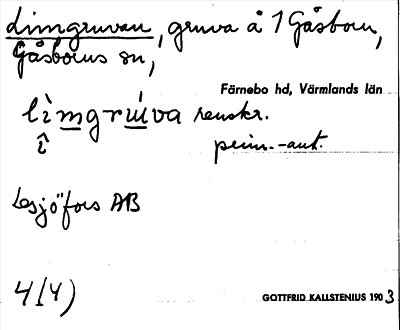 Limgruvan, gruva å 1 Gåsborn,
Gåsborns sn,
Färnebo hd, Värmlands län
lìmgruva renskr.
î prim.-aut.
Lesjöfors AB
4 (4)
GOTTFRID KALLSTENIUS 1903